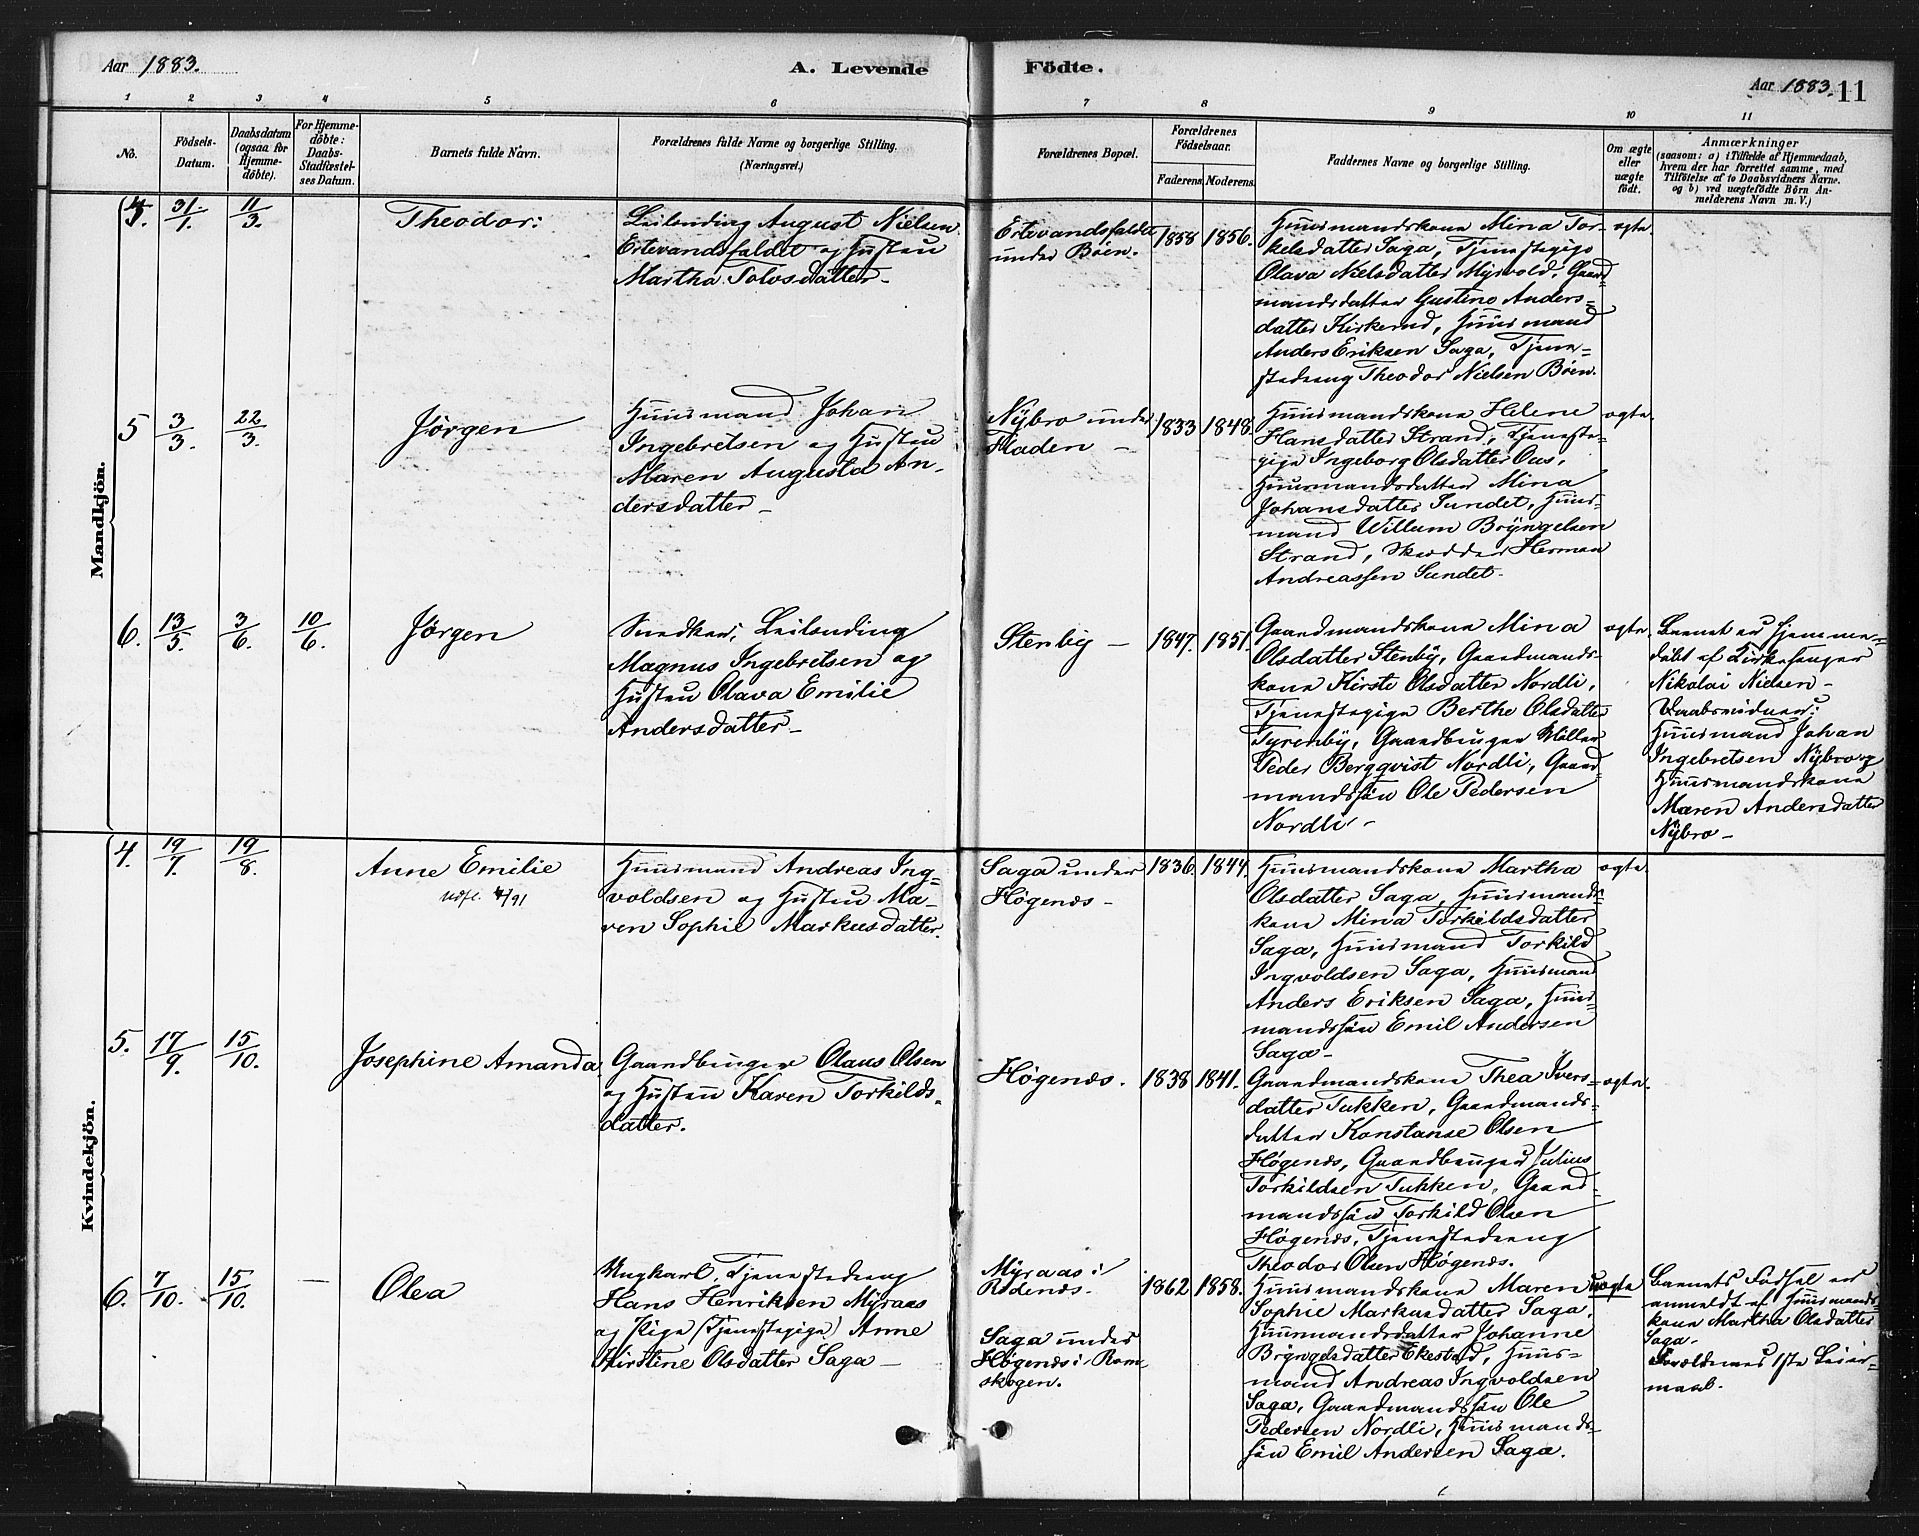 Aar 1883.
A. Levende
Födte.
Aar 1883. 11
1 2 3 4 5 6 7 8 9 10 11
No.
Födsels-
Datum.
Daabsdatum
(ogsaa for
Hjemme-
döbte).
For Hjemme-
döbte:
Daabs-
Stadfæstel-
ses Datum.
Barnets fulde Navn.
Forældrenes fulde Navne og borgerlige Stilling.
(Næringsvei.)
Forældrenes Bopæl.
Forældrenes
Födselsaar.
Faderens.
Moderens.
Faddernes Navne og borgerlige Stilling.
Om ægte
eller
uægte
födt.
Anmærkninger
(saasom: a) i Tilfælde af Hjemmedaab,
hvem der har forrettet samme, med
Tilföielse af to Daabsvidners Navne.
og b) ved uægtefödte Börn An-
melderens Navn m. V.)
Mandkjön.
31/1. 11/3.
Theodor:
Leilending August Nielsen
Ertevandsfaldet og Hustru
Martha Tolvsdatter
Ertevandsfaldet
under Böen.
1858 1856.
Huusmandskone Mina Tor-
kelsdatter Saga, Tjenestepige
Olava Nielsdatter Myrvold, Gaard-
mandsdatter Gustine Anders-
datter Kirkerud, Huusmand
Anders Eriksen Saga, Tjene-
stedreng Theodor Nielsen Böen.
ægte.
5 3/3. 22/3.
Jørgen
Huusmand Johan
Ingebretsen og Hustru
Maren Augusta An-
dersdatter
Nybro under
Haden
1833 1848
Huusmandskone Helene
Hansdatter Strand, Tjeneste-
pige Ingeborg Olsdatter Ous,
Huusmandsdatter Mina
Johansdatter Sundet, Huus-
mand Willum Bryngelsen
Strand, Skrædder Herman
Andreassen Sundet.
ægte.
6. 13/5. 3/6. 10/6.
Jørgen
Snedker, Leilending
Magnus Ingebretsen og
Hustru Olava Emilie
Andersdatter
Stenby
1847. 1851.
Gaardmandskone Mina
Olsdatter Stenby, Gaardmands-
kone Kirsti Olsdatter Nordli,
Tjenestepige Berthe Olsdatter
Tyrenby, Gaardbruger Möller
Peder Bergqvist Nordli, Gaard-
mandssön Ole Pedersen
Nordli
ægte.
Barnet er hjemme-
döbt af Kirkesanger
Nikolai Nielsen
Daabsvidner:
Huusmand Johan
Ingebretsen Nybro og
Huusmandskone
Maren Andersdatter
Nybro
Kvindekjön.
4. 19/7. 19/8.
Anne Emilie
Udfl. 4/91
Huusmand Andreas Ing-
voldsen og Hustru Ma-
ren Sophie Markusdatter.
Saga under
Høgenæs
1836. 1844.
Huusmandskone Martha
Olsdatter Saga, Huusmands-
kone Mina Torkildsdatter
Saga, Huusmand Torkild
Ingvoldsen Saga, Huusmand
Anders Eriksen Saga, Huus-
mandssön Emil Andersen
Saga
ægte.
5. 17/9. 15/10.
Josephine Amanda
Gaardbruger Olaus Olsen
og Hustru Karen Torkilds-
datter.
Høgenæs.
1838 1841.
Gaardmandskone Thea Ivers-
datter Tukken, Gaardmands-
datter Konstanse Olsen
Høgenæs, Gaardbruger Julius
Torkildsen Tukken, Gaard-
mandssön Torkild Olsen
Høgenæs, Tjenestedreng
Theodor Olsen Høgenæs.
ægte.
6. 7/10. 15/10.
Olea
Ungkarl, Tjenestedreng
Hans Henriksen Myraas
og Pige (Tjenestepige) Anne
Kirstine Olsdatter Saga
Myraas i
Rødenæs.
Saga under
Høgenæs i Rom-
skogen.
1862 1858.
Huusmandskone Maren
Sophie Markusdatter Saga,
Huusmandsdatter Johanne
Bryngelsdatter Ekestad, Huus-
mand Andreas Ingvoldsen
Saga, Gaardmandssön Ole
Pedersen Nordli, Huusmands-
sön Emil Andersen Saga.
uægte
Barnets Fødsel er
anmeldt af Huusmands-
kone Martha Olsdatter
Saga.
Forældrenes 1ste Leier-
maal.